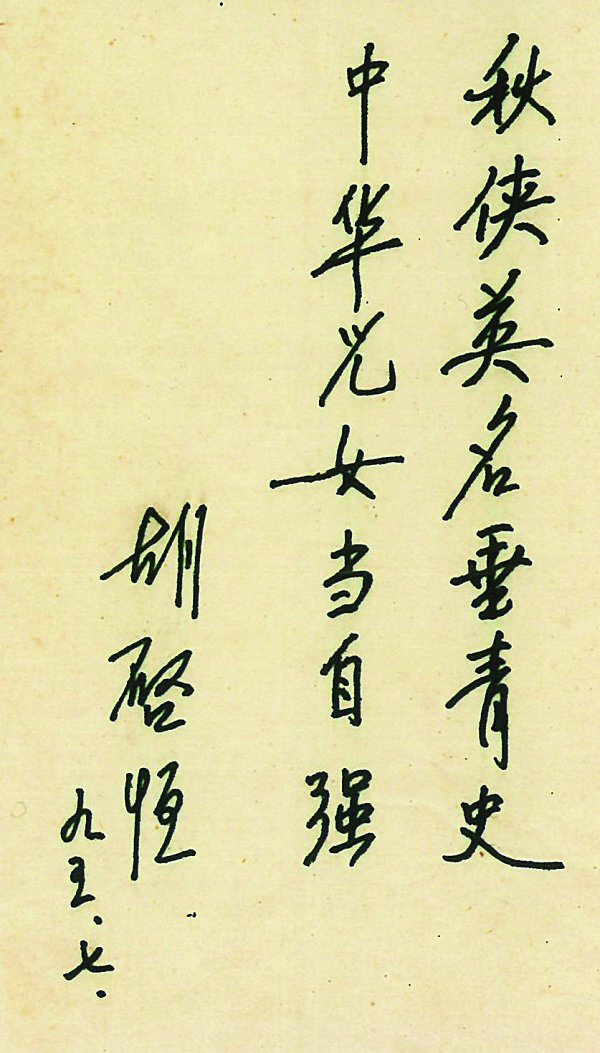 秋侠英名垂青史
中华儿女当自强
胡启恒
九五.七.